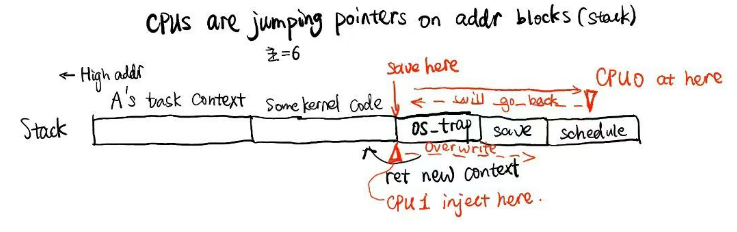 CPUs are jumping pointers on addr blocks (stack)
← High addr
save here
CPU0 at here
will go back
A's task Context
Some kernel code
Stack
os_trap
save
schedule
Overwrite
ret new context
CPU1 inject here.